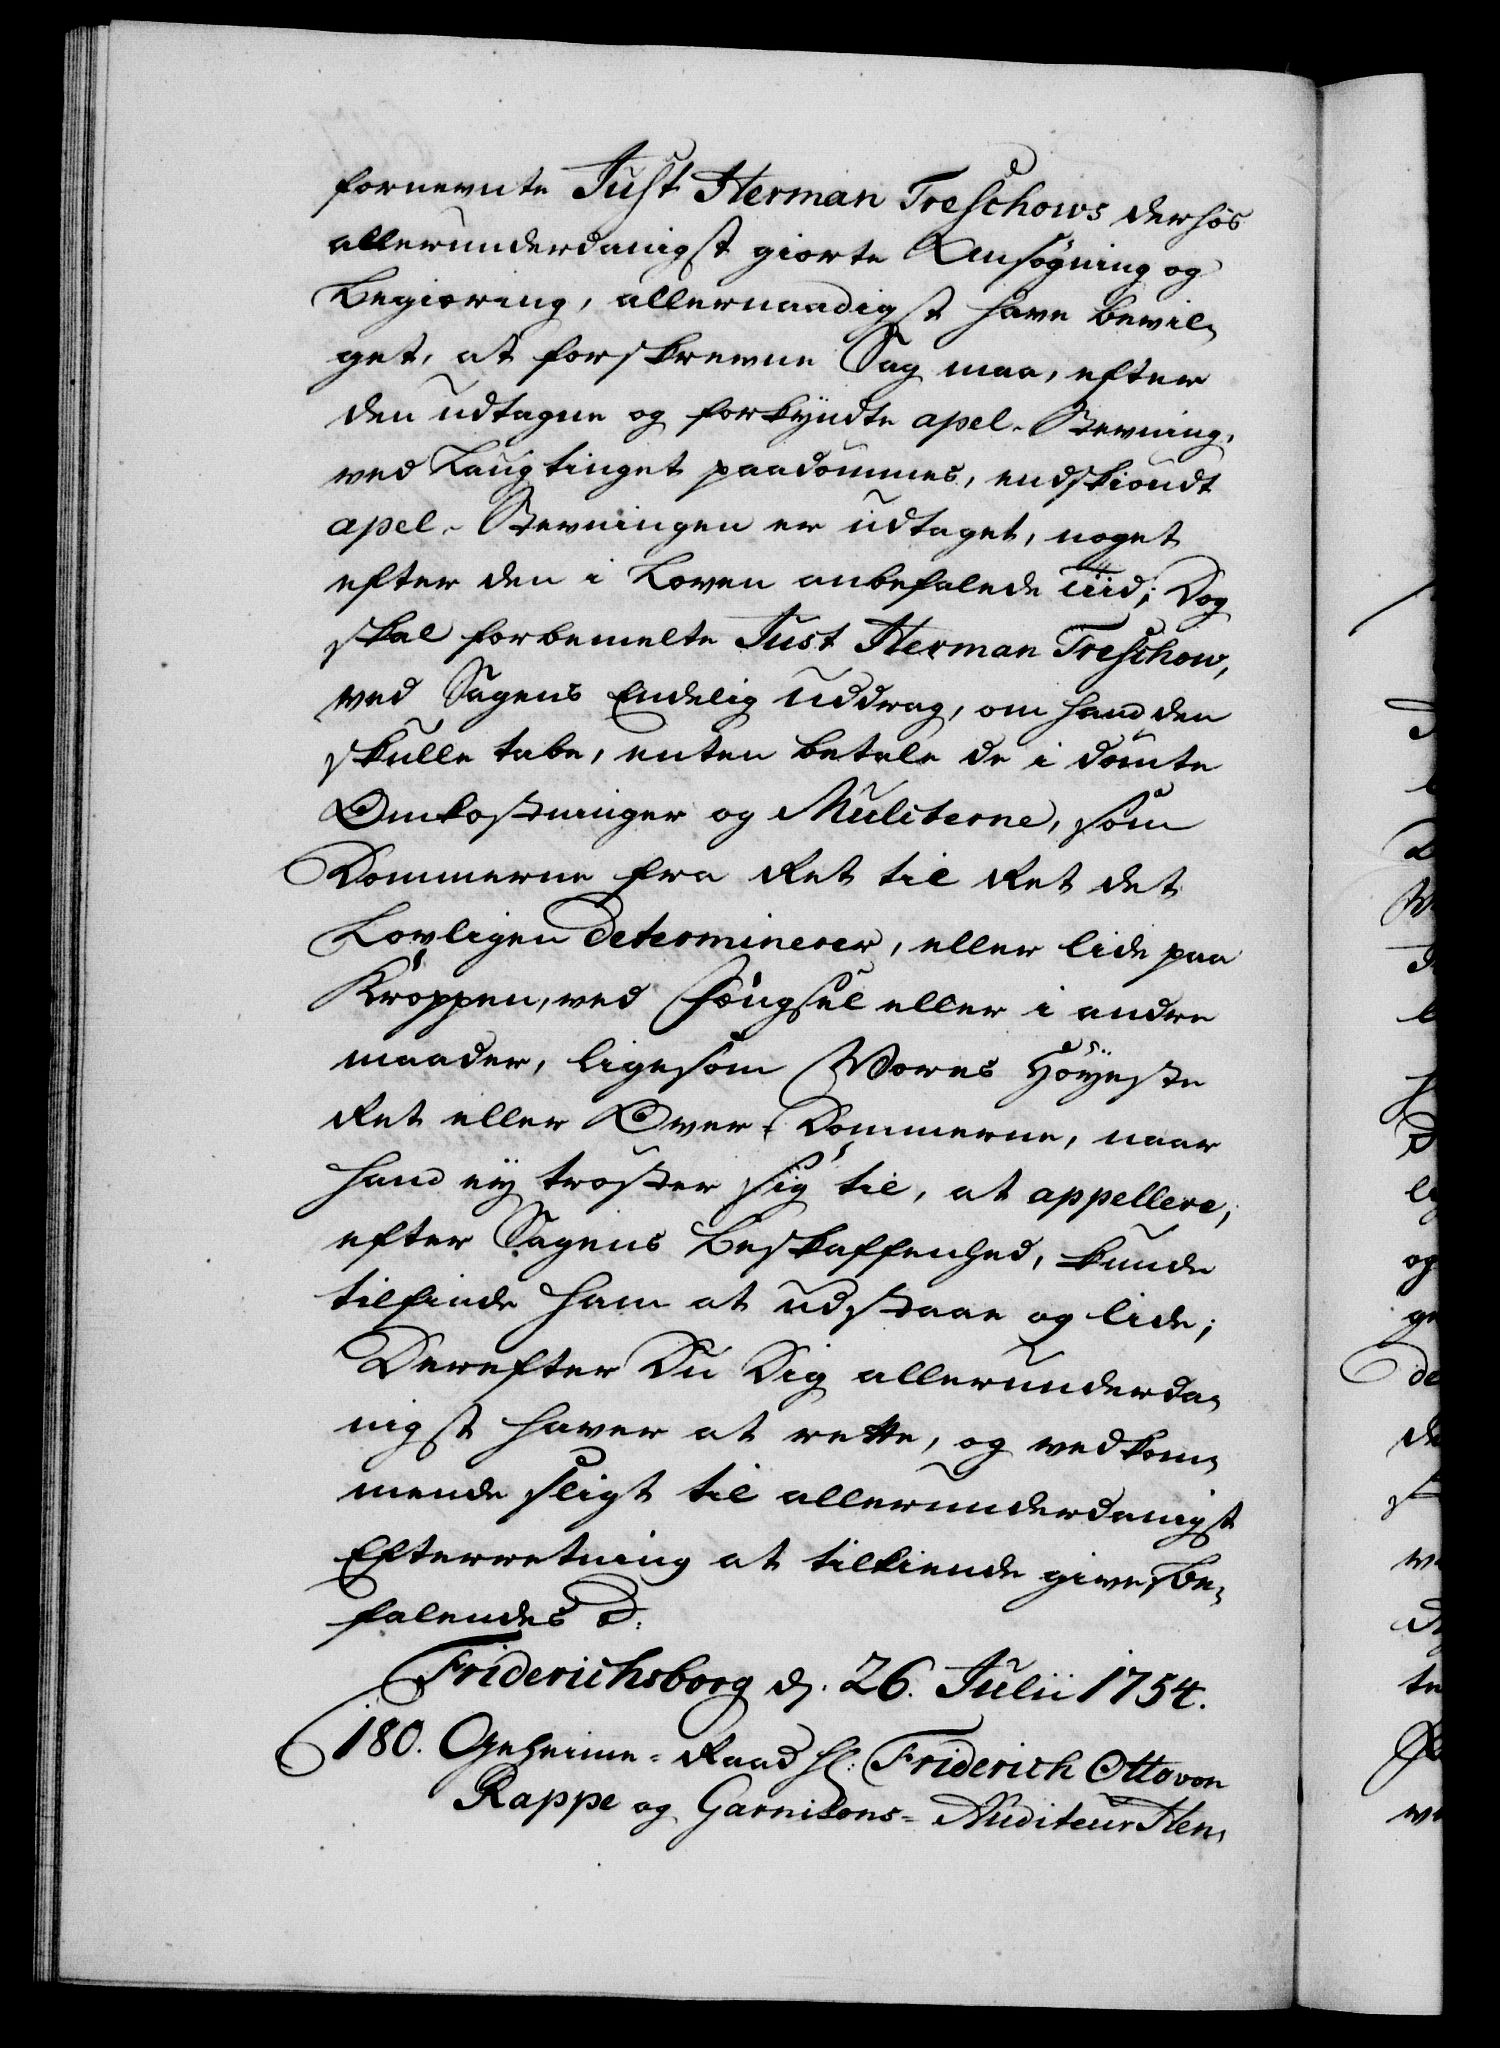 fornevnte Just Herman Treschows derhos
allerunderdanigst giorte Ansøgning og
Begiæring, allernaadigst have bevil-
get, at forskrevne Sag maa, efter
den udtagne og forkyndte apel-Stevning,
ved Laugtinget paadømmes, endskiøndt
apel-Stevningen er udtaget, noget
efter den i Loven anbefalede Tiid; Dog
skal forbemelte Just Herman Treschow,
ved Sagens Endelig Uddrag, om hand den
skulle tabe, enten betale de i dømte
Omkostninger og Mulcterne, som
Dommerne fra Ret til Ret det
Lovligen determinerer, eller lide paa
Kroppen, ved Fængsel eller i andre
maader, ligesom Vores Høyeste
Ret eller Over-Dommerne, naar
hand ey trøster sig til, at appellere,
efter Sagens Beskaffenhed, kunde
tilfinde ham at udstaae og lide;
Derefter Du Dig allerunderda-
nigst haver at rette, og vedkom-
mende sligt til allerunderdanigst
Efterretning at tilkiende give, be-
falendes D:
Friderichsborg d. 26. Julii 1754.
180. Geheime-Raad Hr: Friderich Otto von
Rappe og Garnisons-Auditeur Hen-